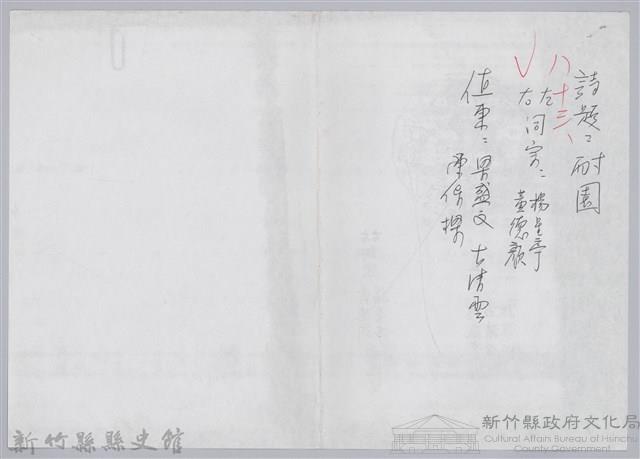 詩題:耐園
八十三、
左
右詞宗:楊星亭
黃德顏
值東:吳盛文 古清雲
陳保樑
新竹縣縣史館
新竹縣政府文化局
Cultural Affairs Bureau of Hsinchu
County Government